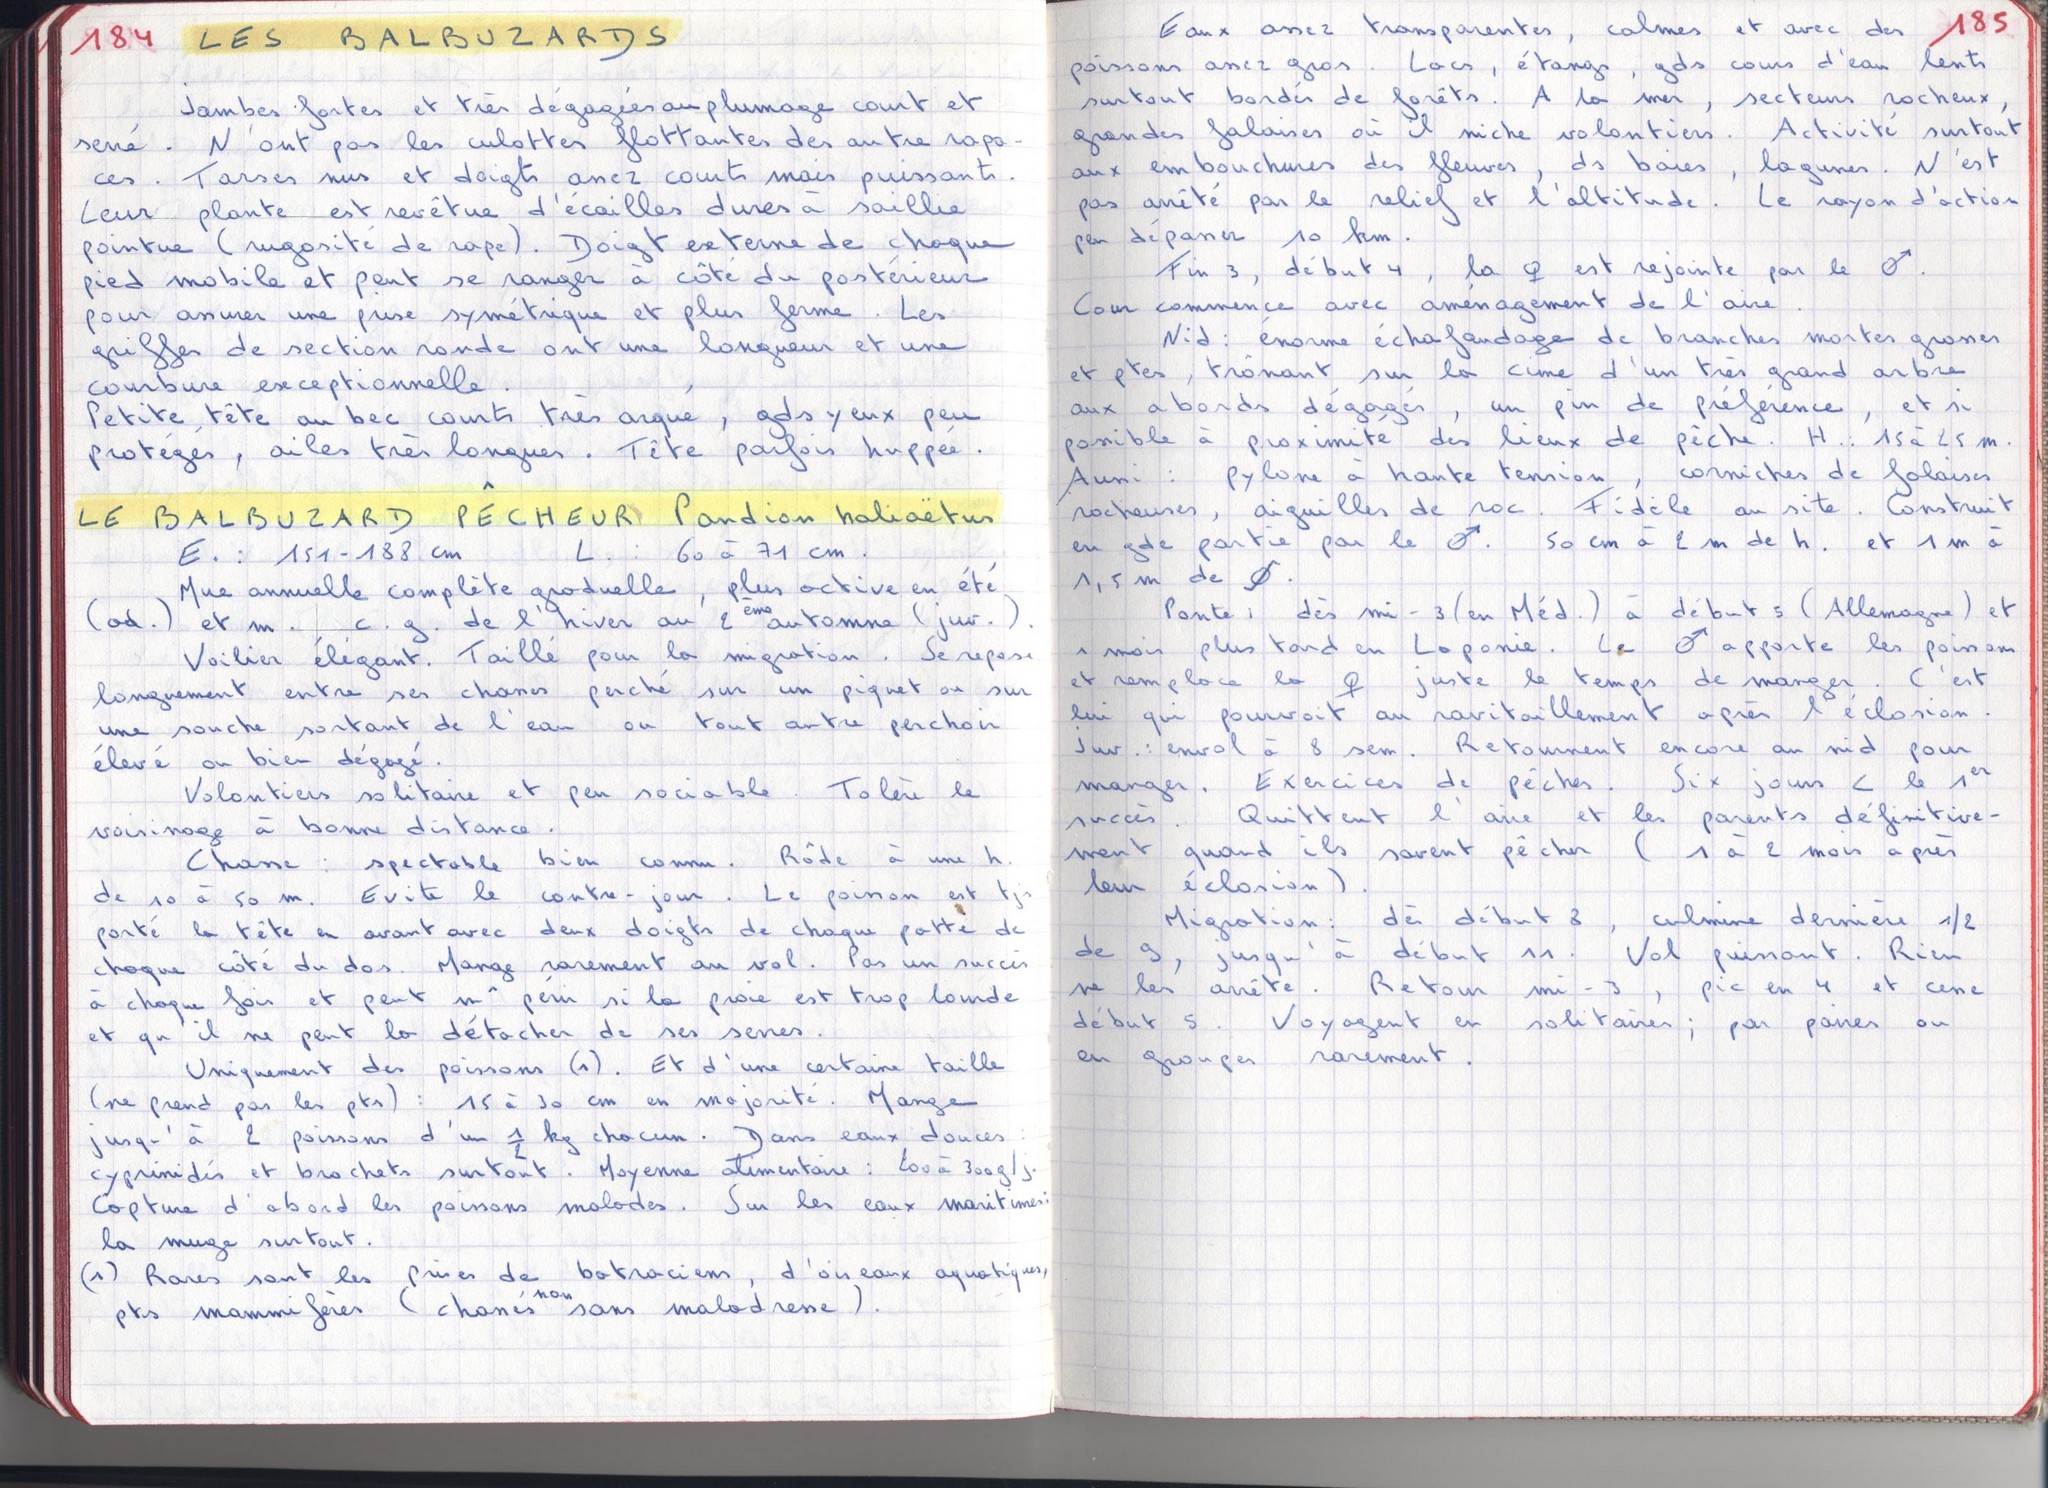 184 LES BALBUZARDS
Jambes fortes et très dégagées au plumage court et
serré. N'ont pas les culottes flottantes des autre rapa-
ces. Tarses nus et doigts assez courts mais puissants.
Leur plante est revêtue d'écailles dures à saillie
pointue (rugosité de rape). Doigt externe de chaque
pied mobile et peut se ranger à côté du postérieur
pour assurer une prise symétrique et plus ferme. Les
griffes de section ronde ont une longueur et une
courbure exceptionnelle.
Petite tête au bec courts très arqué, gds yeux peu
protégés, ailes très longues. Tête parfois huppée.
LE BALBUZARD PÊCHEUR Pandion haliaëtus
E. : 151-188 cm L. : 60 à 71 cm.
Mue annuelle complète graduelle, plus active en été
(ad.) et m. c. g. de l'hiver au 2ème automne (juv.).
Voilier élégant. Taillé pour la migration. Se repose
longuement entre ses chasses perché sur un piquet ou sur
une souche sortant de l'eau ou tout autre perchoir
élevé ou bien dégagé.
Volontiers solitaire et peu sociable. Tolère le
voisinage à bonne distance.
Chasse : spectable bien connu. Rôde à une h.
de 10 à 50 m. Evite le contre-jour. Le poisson est tjs
porté la tête en avant avec deux doigts de chaque patte de
chaque côté du dos. Mange rarement au vol. Pas un succès
à chaque fois et peut m^ périr si la proie est trop lourde
et qu'il ne peut la détacher de ses serres.
Uniquement des poissons (1). Et d'une certaine taille
(ne prend pas les pts) : 15 à 30 cm en majorité. Mange
jusqu'à 2 poissons d'un 1/2 kg chacun. Dans eaux douces :
cyprinidés et brochets surtout. Moyenne alimentaire : 200 à 300g/j.
Capture d'abord les poissons malades. Sur les eaux maritimes :
la muge surtout.
(1) Rares sont les prises de batraciens, d'oiseaux aquatiques,
pts mammifères (chassés non sans maladresse).
185
Eaux assez transparentes, calmes et avec des
poissons assez gros. Lacs, étangs, gds cours d'eau lents
surtout bordés de forêts. A la mer, secteurs rocheux,
grandes falaises où il niche volontiers. Activité surtout
aux embouchures des fleuves, ds baies, lagunes. N'est
pas arrêté par le relief et l'altitude. Le rayon d'action
peu dépasser 10 km.
Fin 3, début 4, la ♀ est rejointe par le ♂.
Cour commence avec aménagement de l'aire.
Nid : énorme échafaudage de branches mortes grosses
et ptes, trônant sur la cime d'un très grand arbre
aux abords dégagés, un pin de préférence, et si
possible à proximité des lieux de pêche. H. : 15 à 25 m.
Aussi : pylone à haute tension, corniches de falaises
rocheuses, aiguilles de roc. Fidèle au site. Construit
en gde partie par le ♂. 50 cm à 2 m de h. et 1 m à
1,5 m de Ø.
Ponte : dès mi-3 (en Méd.) à début 5 (Allemagne) et
1 mois plus tard en Laponie. Le ♂ apporte les poissons
et remplace la ♀ juste le temps de manger. C'est
lui qui pourvoit au ravitaillement après l'éclosion.
Juv. : envol à 8 sem. Retournent encore au nid pour
manger. Exercices de pêches. Six jours < le 1er
succès. Quittent l'aire et les parents définitive-
ment quand ils savent pêcher (1 à 2 mois après
leur éclosion).
Migration : dès début 8, culmine dernière 1/2
de 9, jusqu'à début 11. Vol puissant. Rien
ne les arrête. Retour mi-3, pic en 4 et cesse
début 5. Voyagent en solitaires ; par paires ou
en groupes rarement.